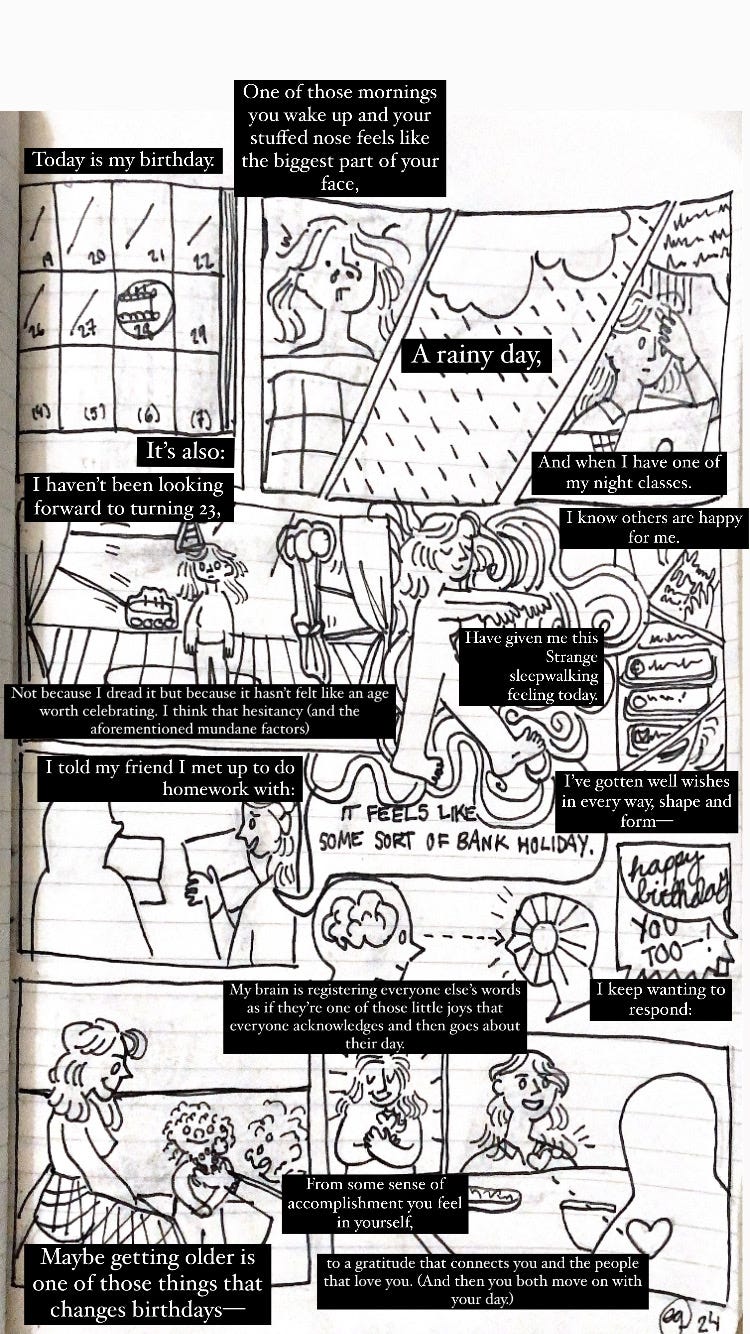 Today is my birthday.
19 20 21 22
26 27 28 29
(4) (5) (6) (7)
It's also:
One of those mornings
you wake up and your
stuffed nose feels like
the biggest part of your
face,
A rainy day,
And when I have one of
my night classes.
I haven't been looking
forward to turning 23,
Not because I dread it but because it hasn't felt like an age
worth celebrating. I think that hesitancy (and the
aforementioned mundane factors)
Have given me this
Strange
sleepwalking
feeling today.
I know others are happy
for me.
I've gotten well wishes
in every way, shape and
form—
I told my friend I met up to do
homework with:
IT FEELS LIKE
SOME SORT OF BANK HOLIDAY.
My brain is registering everyone else's words
as if they're one of those little joys that
everyone acknowledges and then goes about
their day.
happy
birthday
YOU
TOO—!
I keep wanting to
respond:
Maybe getting older is
one of those things that
changes birthdays—
From some sense of
accomplishment you feel
in yourself,
to a gratitude that connects you and the people
that love you. (And then you both move on with
your day.)
24